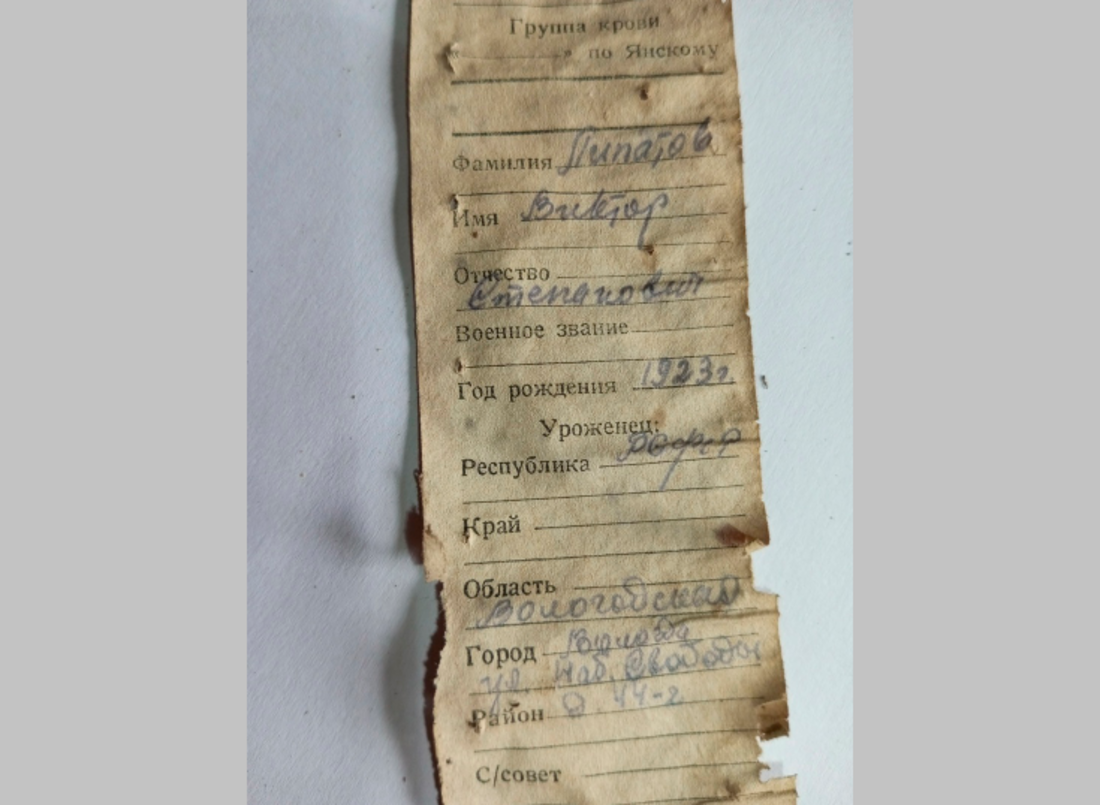 Группа крови
«» по Янскому
Фамилия Липатов
Имя Виктор
Отчество
Степанович
Военное звание
Год рождения 1923г.
Уроженец:
Республика
Край
Область
Вологодская
Город Вологда
ул. Наб. Свободы
Район д. 44-г
С/совет